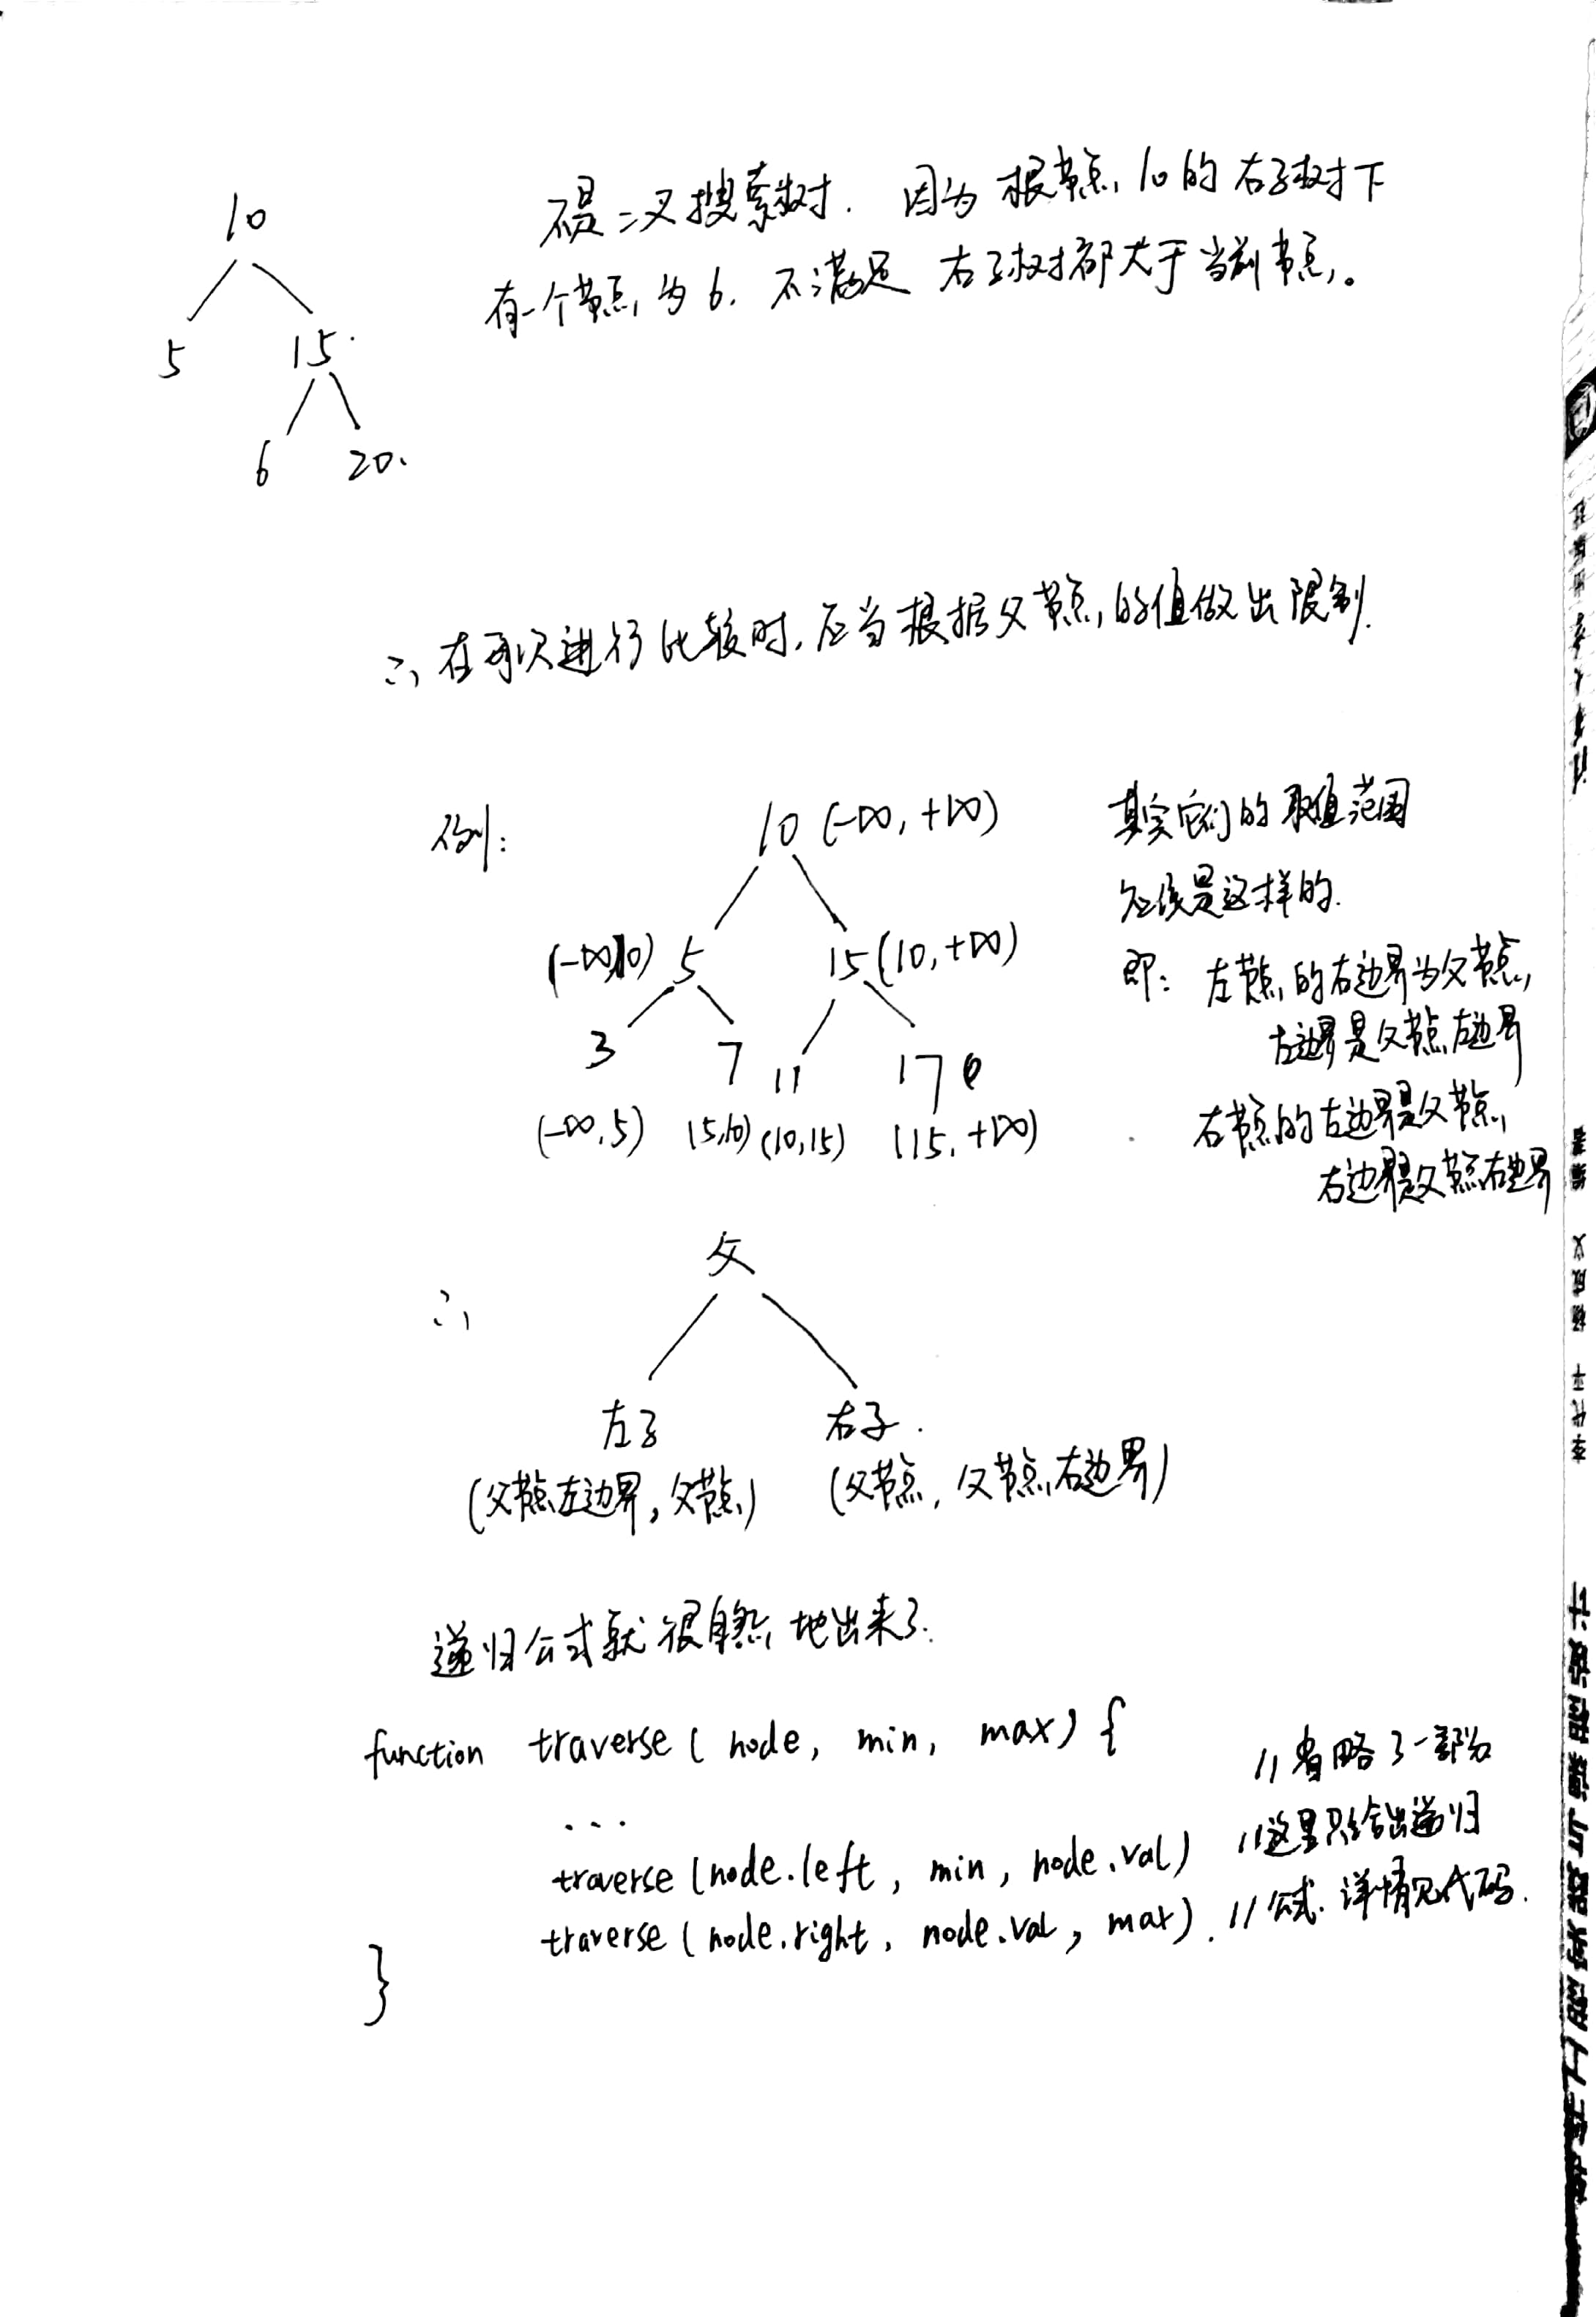 10
5 15
6 20
不是二叉搜索树. 因为根节点10的右子树下
有一个节点为6. 不满足 右子树都大于当前节点。
∴ 在每次进行比较时, 应当根据父节点的值做出限制.
例:
10 (-∞, +∞)
(-∞,10) 5 15 (10, +∞)
3 7 11 17
(-∞, 5) (5,10) (10,15) (15, +∞)
其实它们的取值范围
应该是这样的.
即: 左节点的右边界为父节点,
左边界是父节点左边界
右节点的左边界是父节点,
右边界是父节点右边界
∴
父
左子 右子.
(父节点左边界, 父节点) (父节点, 父节点右边界)
递归公式就很自然地出来了.
function traverse ( node, min, max) { // 省略了一部分
... // 这里只给出递归
traverse (node.left, min, node.val) // 公式. 详情见代码.
traverse ( node.right, node.val, max).
}